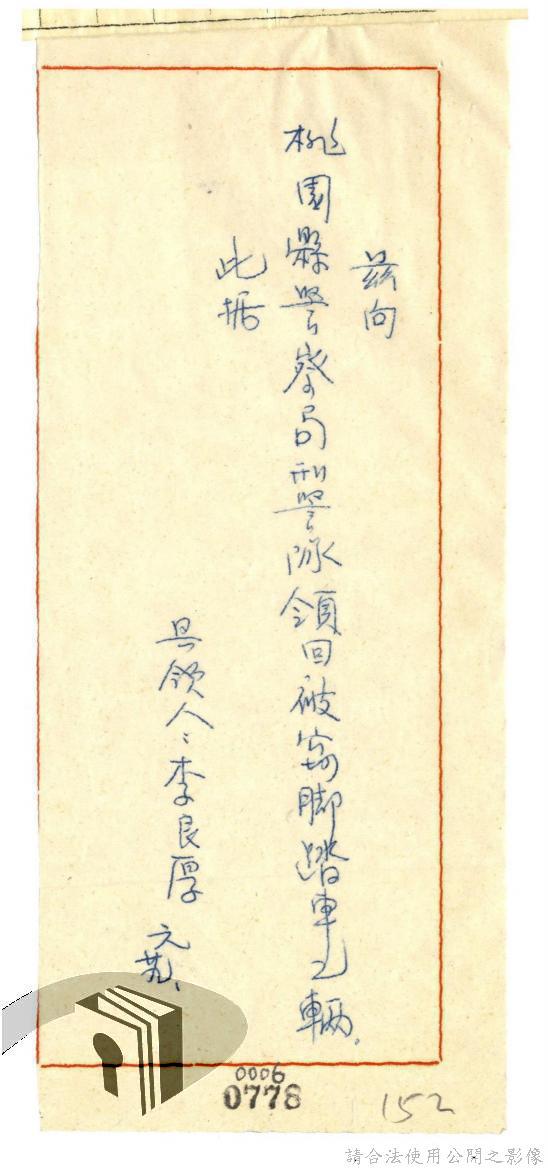 茲向
桃園縣警察局刑警隊領回被竊脚踏車乙輛.
此据
具領人:李良厚
0006
0778
152
請合法使用公開之影像